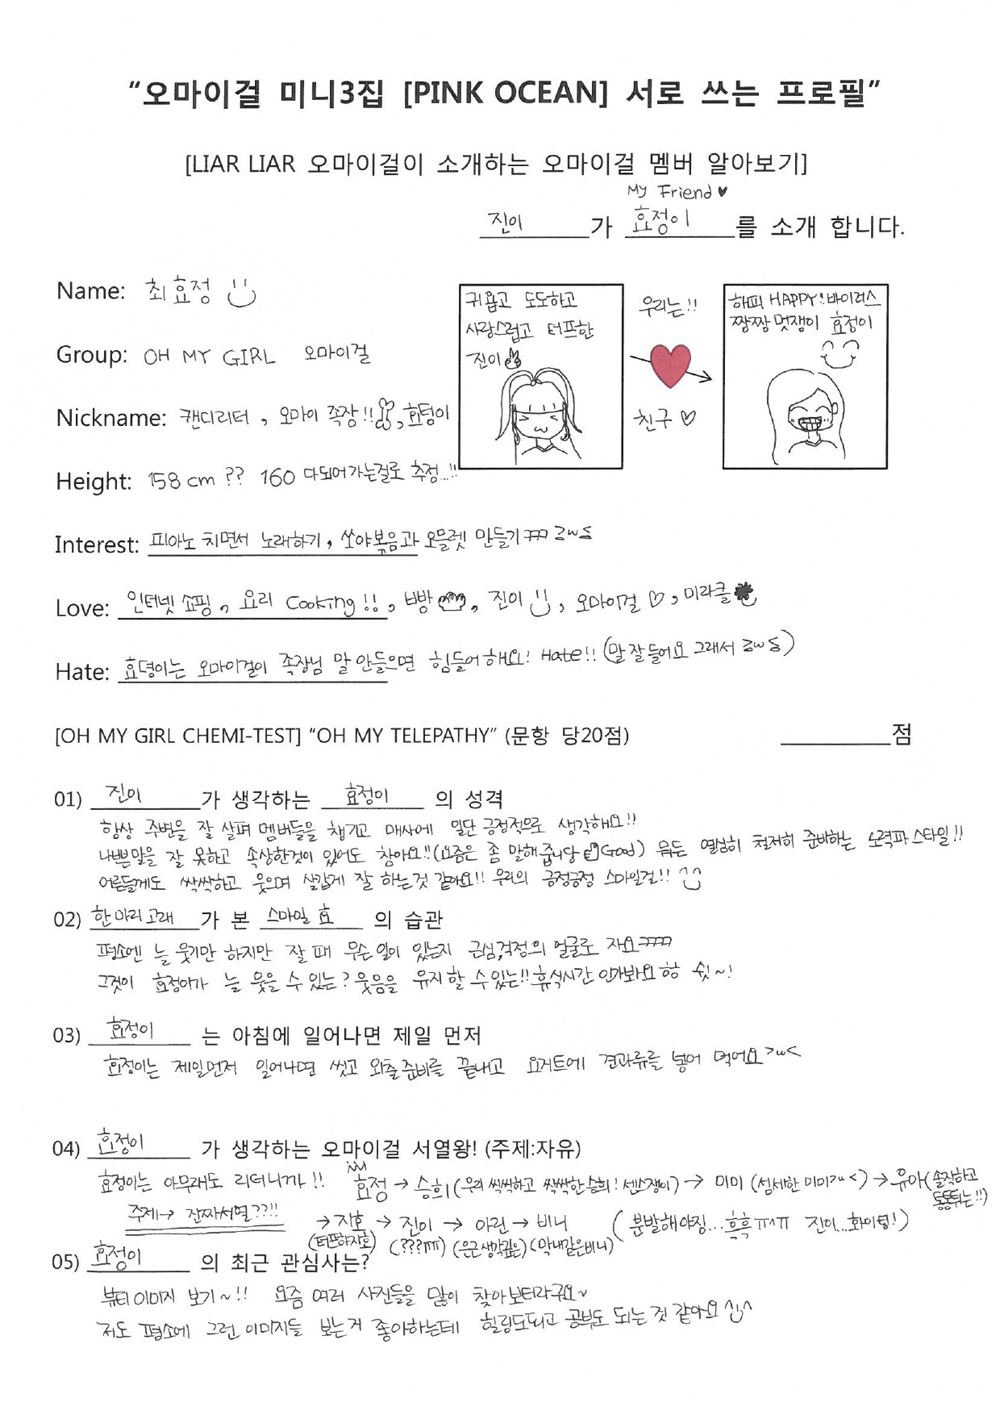 “오마이걸 미니3집 [PINK OCEAN] 서로 쓰는 프로필”
[LIAR LIAR 오마이걸이 소개하는 오마이걸 멤버 알아보기]
My Friend ♥
진이 가 효정이 를 소개 합니다.
Name: 최효정
Group: OH MY GIRL 오마이걸
Nickname: 캔디리더, 오마이 족장!! , 효덩이
Height: 158cm ?? 160 다되어가는걸로 추정...!!
귀욥고 도도하고
사랑스럽고 터프한
진이
우리는!!
친구 ♡
해피 HAPPY! 바이러스
짱짱 멋쟁이 효정이
Interest: 피아노 치면서 노래하기, 쏘야볶음과 오믈렛 만들기 ㅋㅋㅋ
Love: 인터넷 쇼핑, 요리 Cooking!!, 빵 , 진이 , 오마이걸 ♡, 미라클
Hate: 효덩이는 오마이걸이 족장님 말 안들으면 힘들어해요! Hate!! (말 잘들어요 그래서 )
[OH MY GIRL CHEMI-TEST] “OH MY TELEPATHY” (문항 당20점) 점
01) 진이 가 생각하는 효정이 의 성격
항상 주변을 잘 살펴 멤버들을 챙기고 매사에 일단 긍정적으로 생각해요!!
나쁜말을 잘 못하고 속상한것이 있어도 참아요!! (요즘은 좀 말해줍니당 Good) 뭐든 열심히 철저히 준비하는 노력파 스타일!!
어른들께도 싹싹하고 웃으며 살갑게 잘 하는것 같아요!! 우리의 긍정긍정 스마일걸!!
02) 한마리고래 가 본 스마일 효 의 습관
평소엔 늘 웃기만 하지만 잘 때 무슨일이 있는지 근심,걱정의 얼굴로 자요ㅋㅋㅋㅋ
그것이 효정이가 늘 웃을 수 있는? 웃음을 유지할 수 있는!! 휴식시간 인가봐요 쉿~!
03) 효정이 는 아침에 일어나면 제일 먼저
효정이는 제일먼저 일어나면 씻고 외출준비를 끝내고 요거트에 견과류를 넣어 먹어요 >w<
04) 효정이 가 생각하는 오마이걸 서열왕! (주제:자유)
효정이는 아무래도 리더니까!! 효정 → 승희(우리 씩씩하고 씩씩한 승희! 센스쟁이) → 미미 (섬세한 미미) → 유아(솔직하고 통통튀는!!)
주제→ 진짜서열??!! → 지호 → 진이 → 아린 → 비니 (분발해야징...흑흑 ㅠㅠ 진이...화이팅!)
(터프하지호) (???ㅠㅠ) (은근 생각깊은) (막내같은비니)
05) 효정이 의 최근 관심사는?
뷰티 이미지 보기~!! 요즘 여러 사진들을 많이 찾아보더라구요~
저도 평소에 그런 이미지들 보는거 좋아하는데 힐링도되고 공부도 되는 것 같아요